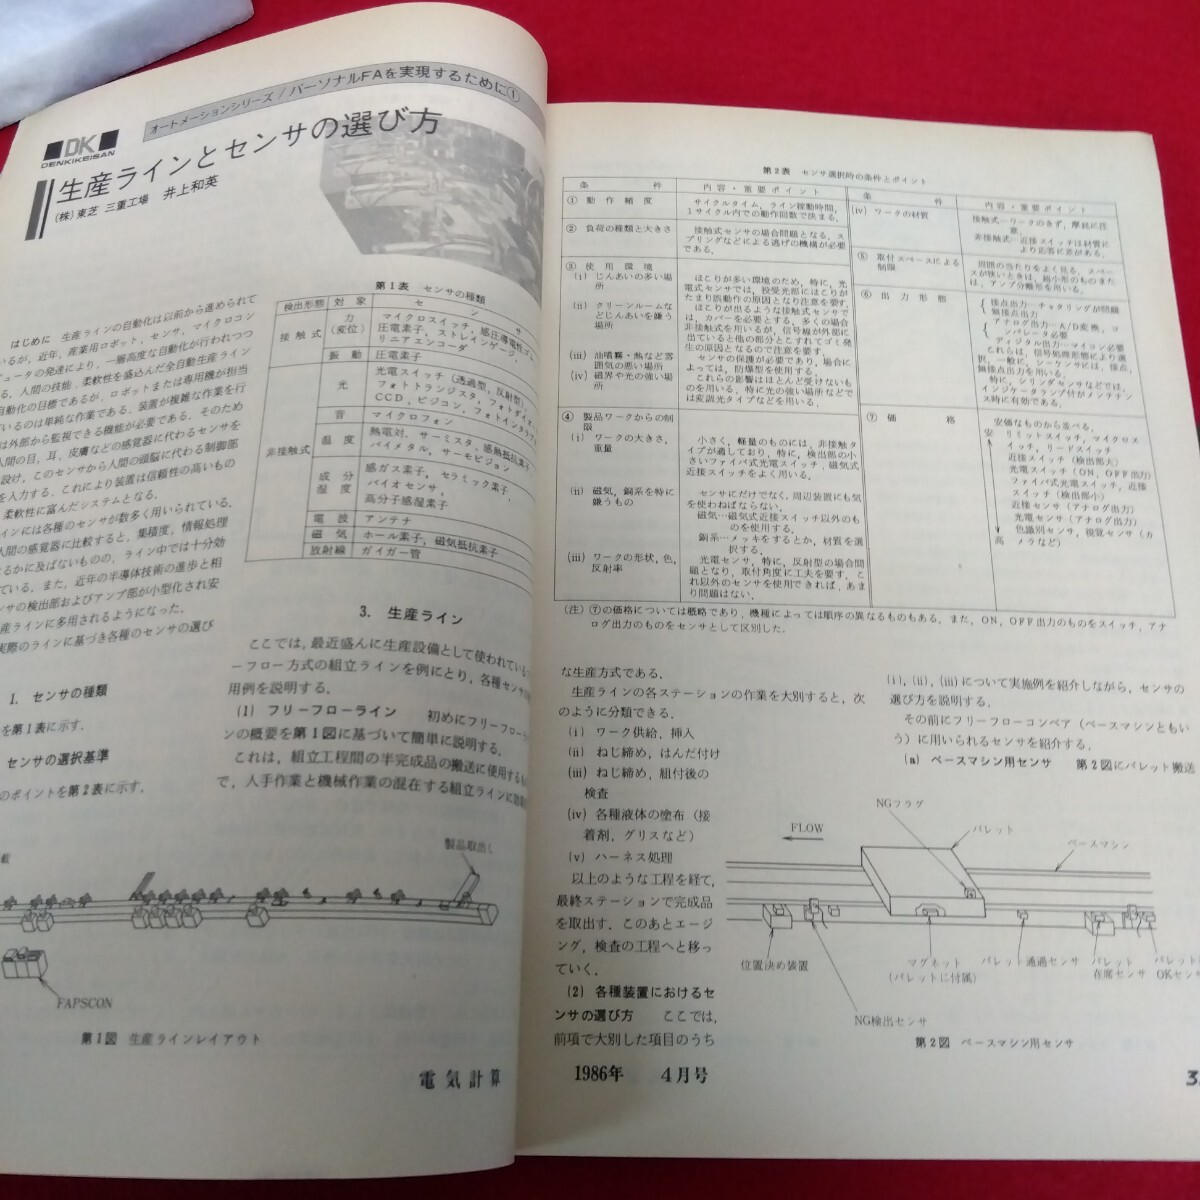 オートメーションシリーズ/パーソナルFAを実現するために①
DK
DENKIKEISAN
生産ラインとセンサの選び方
(株)東芝 三重工場 井上和英
はじめに 生産ラインの自動化は以前から進められて
いるが，近年，産業用ロボット，センサ，マイクロコン
ュータの発達により，一層高度な自動化が行われつつ
る．人間の技能，柔軟性を盛込んだ全自動生産ライン
自動化の目標であるが，ロボットまたは専用機が担当
ているのは単純な作業である．装置が複雑な作業を行
は外部から監視できる機能が必要である．そのため
人間の目，耳，皮膚などの感覚器に代わるセンサを
設け，このセンサから人間の頭脳に代わる制御部
を入力する．これにより装置は信頼性の高いもの
柔軟性に富んだシステムとなる．
インには各種のセンサが数多く用いられている．
人間の感覚器に比較すると，集積度，情報処理
るかに及ばないものの，ライン中では十分効
ている．また，近年の半導体技術の進歩と相
ンサの検出部およびアンプ部が小型化され安
産ラインに多用されるようになった．
実際のラインに基づき各種のセンサの選び
1. センサの種類
を第1表に示す．
センサの選択基準
のポイントを第2表に示す．
第1表 センサの種類
検出形態 対象 セ ン サ
接触式 力(変位) マイクロスイッチ，感圧導電性ゴム
圧電素子，ストレインゲージ，
リニアエンコーダ
振動 圧電素子
非接触式 光 光電スイッチ(透過型，反射型)
フォトトランジスタ，フォトダイオー
CCD，ビジコン，フォトインタラプタ
音 マイクロフォン
温度 熱電対，サーミスタ，感熱抵抗素子
バイメタル，サーモビジョン
成分湿度 感ガス素子，セラミック素子，
バイオセンサ，
高分子感湿素子
電波 アンテナ
磁気 ホール素子，磁気抵抗素子
放射線 ガイガー管
3. 生産ライン
ここでは，最近盛んに生産設備として使われている
ーフロー方式の組立ラインを例にとり，各種センサの
用例を説明する．
(1) フリーフローライン 初めにフリーフロー
ンの概要を第1図に基づいて簡単に説明する．
これは，組立工程間の半完成品の搬送に使用する
で，人手作業と機械作業の混在する組立ラインに効
載
製品取出し
FAPSCON
第1図 生産ラインレイアウト
電気計算
第2表 センサ選択時の条件とポイント
条件 内容・重要ポイント
① 動作頻度 サイクルタイム，ライン稼動時間，
1サイクル内での動作回数で決まる．
② 負荷の種類と大きさ 接触式センサの場合問題となる．ス
プリングなどによる逃げの機構が必要
である．
③ 使用環境
(i) じんあいの多い場所
ほこりが多い環境のため，特に，光
電式センサでは，投受光部にほこりが
たまり誤動作の原因となり注意を要す．
(ii) クリーンルームなどじんあいを嫌う場所
ほこりが出るような接触式センサで
は，カバーを必要とする．多くの場合
非接触式を用いるが，信号線が外部に
出ていると他の部分とこすれてゴミ発
生の原因となるので注意を要す．
(iii) 油噴霧・熱など雰囲気の悪い場所
センサの保護が必要であり，場合に
よっては，防爆型を使用する．
(iv) 磁界や光の強い場所
これらの影響はほとんど受けないも
のを用いる．特に光の強い場所などで
は変調光タイプなどを用いる．
④ 製品ワークからの制限
(i) ワークの大きさ，重量
小さく，軽量のものには，非接触タ
イプが適しており，特に，検出部の小
さいファイバ式光電スイッチ，磁気式
近接スイッチをよく用いる．
(ii) 磁気，銅系を特に嫌うもの
センサにだけでなく，周辺装置にも気
を使わねばならない．
磁気…磁気式近接スイッチ以外のも
のを使用する．
銅系…メッキをするとか，材質を選
択する．
(iii) ワークの形状，色，反射率
光電センサ，特に，反射型の場合問
題となり，取付角度に工夫を要す．こ
れ以外のセンサを使用できれば，あま
り問題はない．
条件 内容・重要ポイント
(iv) ワークの材質 接触式…ワークのきず，摩耗に注
意．
非接触式…近接スイッチは材質に
より応答に差がある．
⑤ 取付スペースによる制限
周囲の当たりをよく見る．スペー
スが狭いときは，縮小形のものまた
は，アンプ分離形を用いる．
⑥ 出力形態
接点出力…チャタリングが問題
無接点出力
アナログ出力…A/D変換，コ
ンパレータ必要
ディジタル出力…マイコン必要
これらは，信号処理形態により選
択，一般に，シーケンスには，接点，
無接点出力を用いる．
特に，シリンダセンサなどでは，
インジケータランプ付がメンテナン
ス時に有効である．
⑦ 価格 安価なものから並べる．
安 リミットスイッチ，マイクロス
イッチ，リードスイッチ
近接スイッチ(検出部大)
光電スイッチ(ON，OFF出力)
ファイバ式光電スイッチ，近接
スイッチ(検出部小)
近接センサ(アナログ出力)
光電センサ(アナログ出力)
色識別センサ，視覚センサ(カ
高 メラなど)
(注) ⑦の価格については概略であり，機種によっては順序の異なるものもある．また，ON，OFF出力のものをスイッチ，アナ
ログ出力のものをセンサとして区別した．
な生産方式である．
生産ラインの各ステーションの作業を大別すると，次
のように分類できる．
(i) ワーク供給，挿入
(ii) ねじ締め，はんだ付け
(iii) ねじ締め，組付後の
検査
(iv) 各種液体の塗布(接
着剤，グリスなど)
(v) ハーネス処理
以上のような工程を経て，
最終ステーションで完成品
を取出す．このあとエージ
ング，検査の工程へと移っ
ていく．
(2) 各種装置におけるセ
ンサの選び方 ここでは，
前項で大別した項目のうち
(i)，(ii)，(iii)について実施例を紹介しながら，センサの
選び方を説明する．
その前にフリーフローコンベア(ベースマシンともい
う)に用いられるセンサを紹介する．
(a) ベースマシン用センサ 第2図にパレット搬送
NGフラグ
FLOW
パレット
ベースマシン
位置決め装置
マグネット
(パレットに付属)
パレット通過センサ
パレット
在席センサ
パレット
OKセン
NG検出センサ
第2図 ベースマシン用センサ
1986年 4月号
3